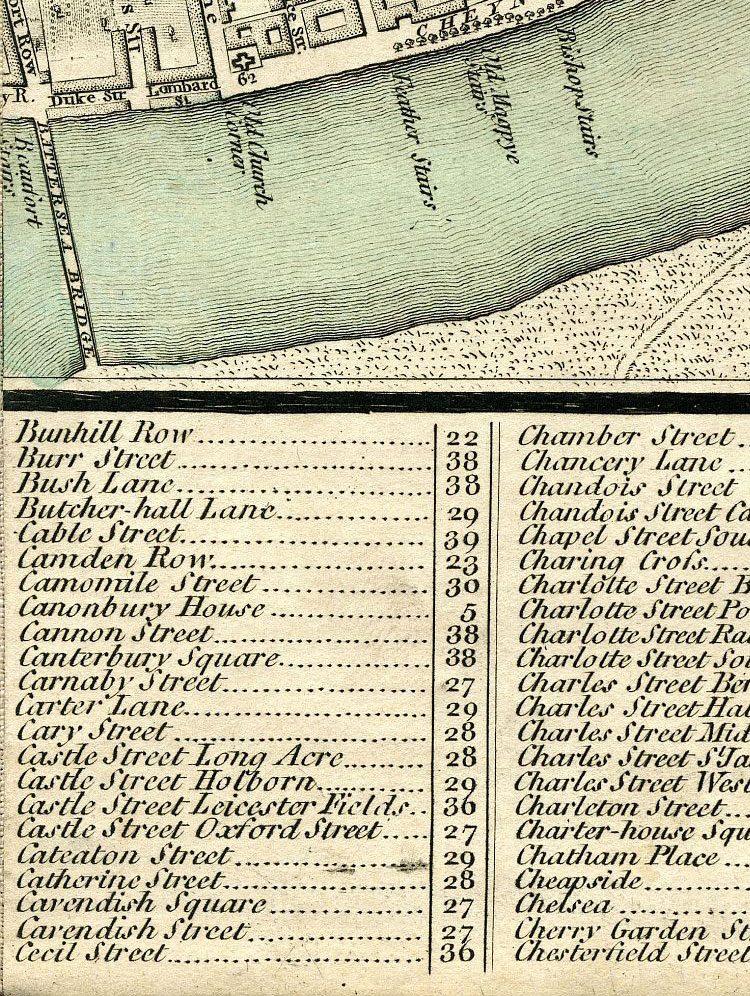 ort Row
s Str
ne
ce Str.
CHEYN
62
y R.
Duke Str
Lombard
St.
Old Church
Corner
Feather Stairs
Old Magpye
Stairs
Bishop Stairs
Beaufort
Stairs
BATTERSEA BRIDGE
Bunhill Row 22
Burr Street 38
Bush Lane 38
Butcher-hall Lane 29
Cable Street 39
Camden Row 23
Camomile Street 30
Canonbury House 5
Cannon Street 38
Canterbury Square 38
Carnaby Street 27
Carter Lane 29
Cary Street 28
Castle Street Long Acre 28
Castle Street Holborn 29
Castle Street Leicester Fields 36
Castle Street Oxford Street 27
Cateaton Street 29
Catherine Street 28
Cavendish Square 27
Cavendish Street 27
Cecil Street 36
Chamber Street
Chancery Lane
Chandois Street
Chandois Street Ca
Chapel Street Sou
Charing Cross
Charlotte Street B
Charlotte Street Po
Charlotte Street Ra
Charlotte Street So
Charles Street Ber
Charles Street Ha
Charles Street Mid
Charles Street St Ja
Charles Street West
Charleton Street
Charter-house Squ
Chatham Place
Cheapside
Chelsea
Cherry Garden St
Chesterfield Street